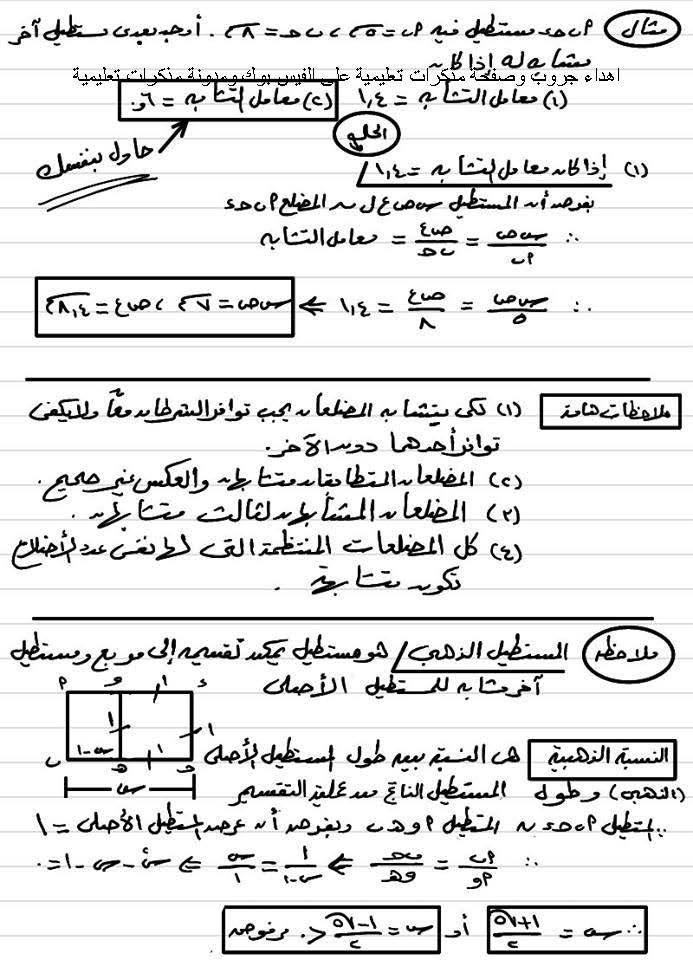 مثال ٢ب حـ ء مستطيل فيه ٢ب = ٥سم ، ب حـ = ٨سم . أوجد بعدى مستطيل آخر
مشابه له إذا كان
اهداء جروب وصفحة مذكرات تعليمية على الفيس بوك ومدونة مذكرات تعليمية
(١) معامل التشابه = ١,٤ (٢) معامل التشابه = ٠,٦
الحل
حاول بنفسك
(١) إذا كان معامل التشابه = ١,٤
بفرض أن المستطيل س ص ع ل ~ المضلع ٢ب حـ ء
∴ س ص / ٢ب = ص ع / ب حـ = معامل التشابه
∴ س ص / ٥ = ص ع / ٨ = ١,٤ ⇐ س ص = ٧سم ، ص ع = ٨,٤سم
ملاحظات هامة (١) لكى يتشابه المضلعان يجب توافر الشرطان معاً ولا يكفى
توافر أحدهما دون الآخر.
(٢) المضلعان المتطابقان متشابهان والعكس غير صحيح .
(٣) المضلعان المشابهان لثالث متشابهان .
(٤) كل المضلعات المنتظمة التى لها نفس عدد الأضلاع
تكون متشابهة .
ملاحظه المستطيل الذهبى / هو مستطيل يمكن تقسيمه إلى مربع ومستطيل
آخر مشابه للمستطيل الأصلى
٢ و ١ ء
١ ١
س-١ ١
ب هـ حـ
س
النسبة الذهبية هى النسبة بين طول المستطيل الأصلى
(الذهبى) وطول المستطيل الناتج من عملية التقسيم
∵ المستطيل ٢ب حـ ء ~ المستطيل ٢و هـ ب وبفرض أن عرض المستطيل الأصلى = ١
∴ ٢ب / ٢و = ب حـ / و هـ ⇐ ١ / س-١ = س / ١ ⇐ س² - س - ١ = ٠
∴ س = (١+√٥) / ٢ أو س = (١-√٥) / ٢ < ٠ مرفوض